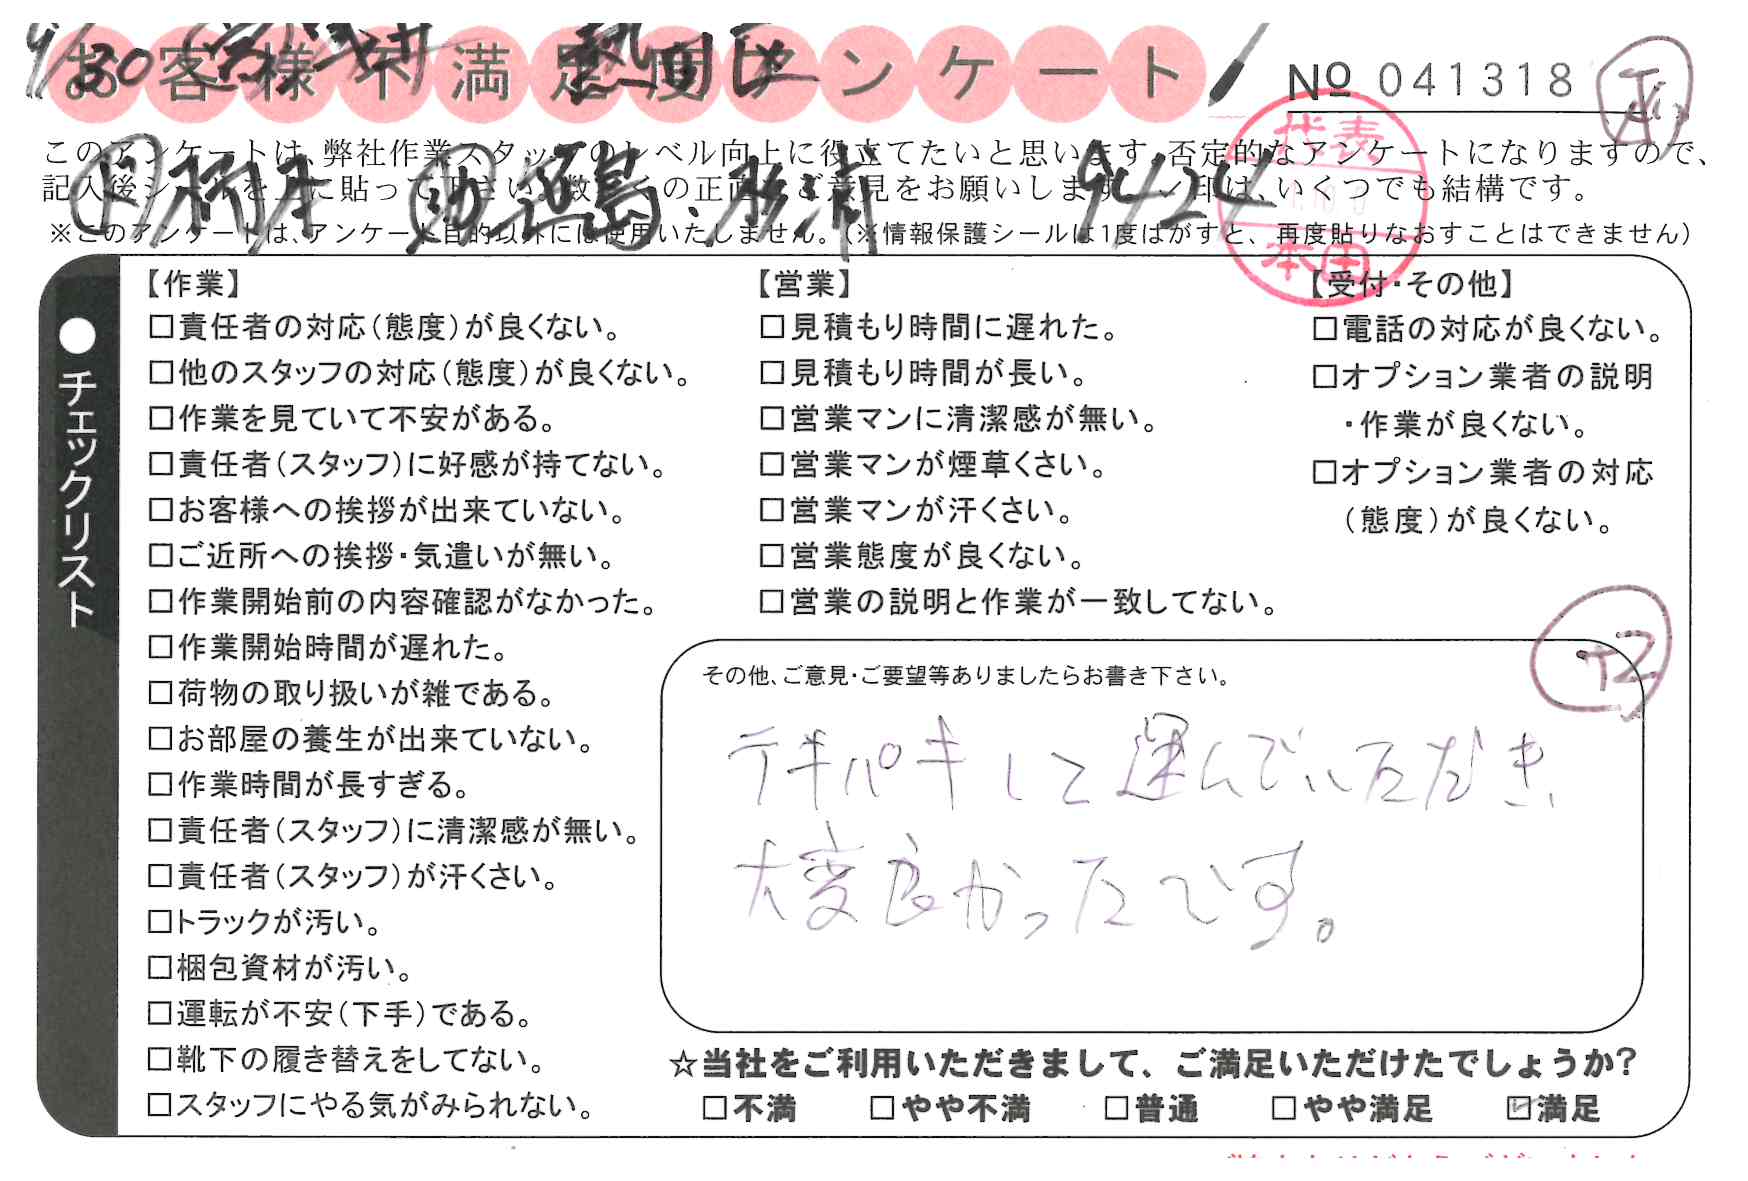 お客様不満足度アンケート
4/30 熱田区
№ 041318
このアンケートは、弊社作業スタッフのレベル向上に役立てたいと思います。否定的なアンケートになりますので、
記入後シールを上に貼って下さい。数多くの正直なご意見をお願いします。✓印は、いくつでも結構です。
※このアンケートは、アンケート目的以外には使用いたしません。(※情報保護シールは1度はがすと、再度貼りなおすことはできません)
9424
代表
本田
●チェックリスト
【作業】
□責任者の対応(態度)が良くない。
□他のスタッフの対応(態度)が良くない。
□作業を見ていて不安がある。
□責任者(スタッフ)に好感が持てない。
□お客様への挨拶が出来ていない。
□ご近所への挨拶・気遣いが無い。
□作業開始前の内容確認がなかった。
□作業開始時間が遅れた。
□荷物の取り扱いが雑である。
□お部屋の養生が出来ていない。
□作業時間が長すぎる。
□責任者(スタッフ)に清潔感が無い。
□責任者(スタッフ)が汗くさい。
□トラックが汚い。
□梱包資材が汚い。
□運転が不安(下手)である。
□靴下の履き替えをしてない。
□スタッフにやる気がみられない。
【営業】
□見積もり時間に遅れた。
□見積もり時間が長い。
□営業マンに清潔感が無い。
□営業マンが煙草くさい。
□営業マンが汗くさい。
□営業態度が良くない。
□営業の説明と作業が一致してない。
【受付・その他】
□電話の対応が良くない。
□オプション業者の説明
・作業が良くない。
□オプション業者の対応
(態度)が良くない。
その他、ご意見・ご要望等ありましたらお書き下さい。
テキパキして運んでいただき、
大変良かったです。
☆当社をご利用いただきまして、ご満足いただけたでしょうか?
□不満 □やや不満 □普通 □やや満足 ☑満足